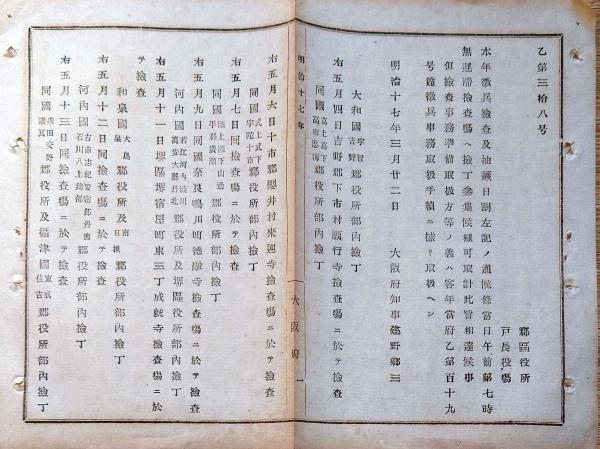 乙第三拾八号
郡區役所
戸長役塲
本年徵兵檢查及抽籤日割左記ノ通候條當日午前第七時
無遲滯檢查塲ヘ撿丁參集候樣可取計此旨相達候事
但檢查事務準備取扱方等ノ義ハ客年當府乙第百十九
号達徵兵事務取扱手續ニ據リ取扱ヘシ
明治十七年三月廿二日
大阪府知事建野鄕三
大和國 宇智 吉野 郡役所部內撿丁
右五月四日吉野郡下市村願行寺檢查塲ニ於テ撿查
同國 葛上葛下 高市忍海 郡役所部內撿丁
明治十七年
大阪府
一
右五月六日十市郡櫻井村來迎寺撿查塲ニ於テ撿查
同國 式上式下 宇陀十市 郡役所部內撿丁
右五月七日同撿查塲ニ於テ撿查
同國 添上添下山邊 平群廣瀨 郡役所部內撿丁
右五月九日同國奈良鳴川町德融寺撿查塲ニ於テ撿查
河內國 若江河內澁川 高安大縣丹北 郡役所及堺區役所部內撿丁
右五月十一日堺區堺宿屋町東三丁成就寺撿查塲ニ於
テ撿查
和泉國 大鳥 泉 郡役所及 南 日根 郡役所部內撿丁
右五月十二日同撿查塲ニ於テ撿查
河內國 古市志紀安宿部丹南 石川八上錦部 郡役所部內撿丁
右五月十三日同撿查塲ニ於テ撿查
同國 茨田交野 讃良 郡役所及攝津國 東成 住吉 郡役所部內撿丁